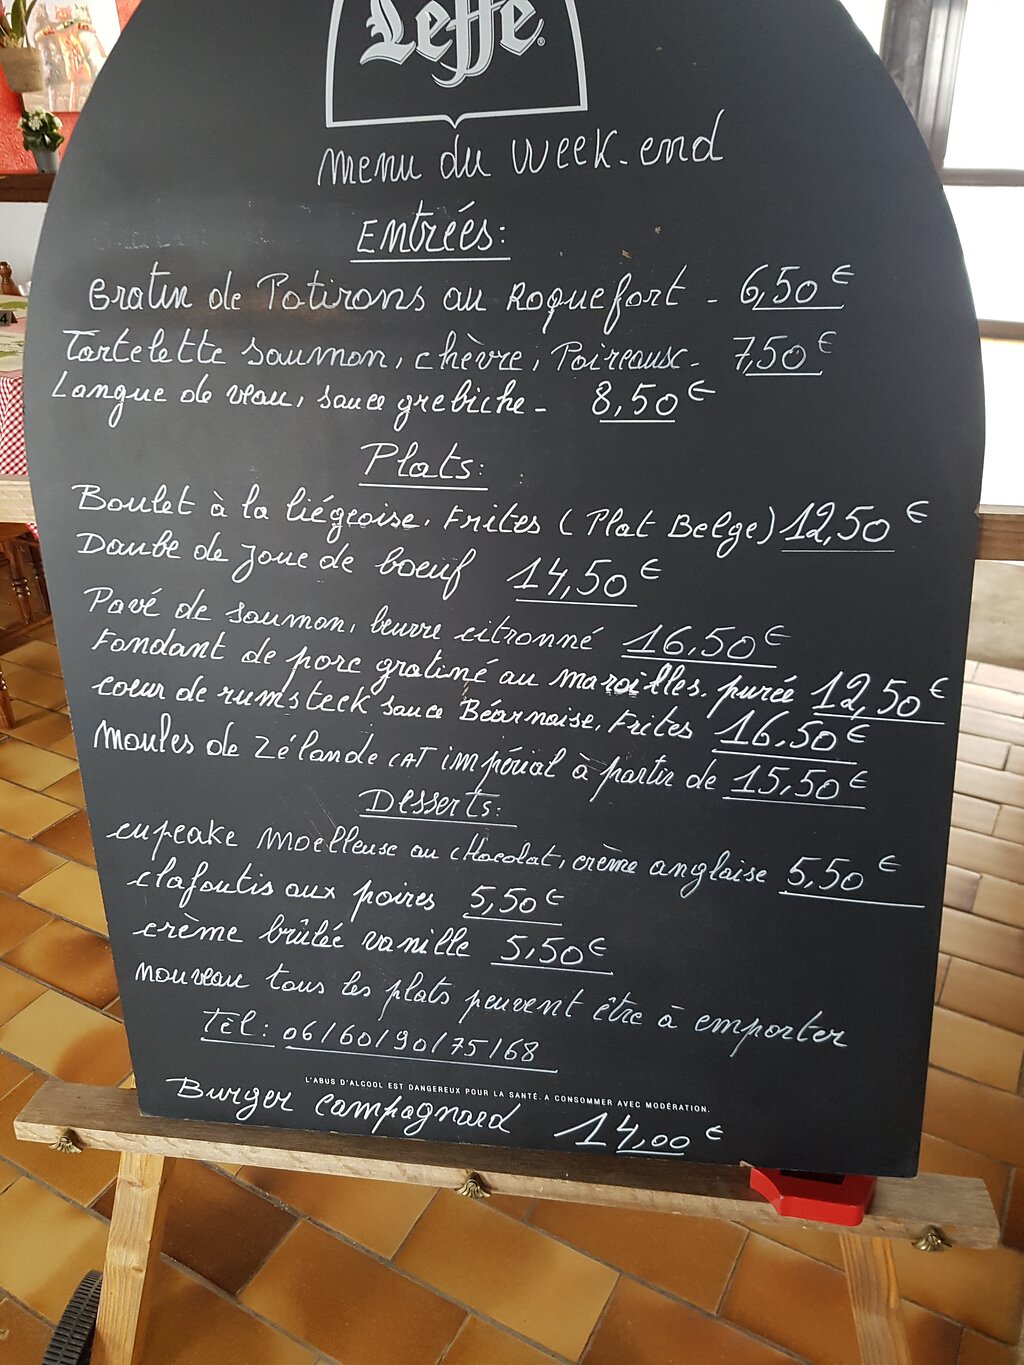 Leffe
menu du week-end
Entrées:
Gratin de Potirons au Roquefort - 6,50€
Tartelette saumon, chèvre, Poireaux- 7,50€
Langue de veau, sauce grebiche- 8,50€
Plats:
Boulet à la liégeoise. Frites (Plat Belge) 12,50€
Daube de Joue de boeuf 14,50€
Pavé de saumon, beurre citronné 16,50€
Fondant de porc gratiné au maroilles. purée 12,50€
coeur de rumsteck sauce Béarnaise, Frites 16.50€
Moules de Zélande CAT impérial à partir de 15,50€
Desserts:
cupcake moelleuse au chocolat, crème anglaise 5,50€
clafoutis aux poires 5,50€
crème brûlée vanille 5,50€
nouveau tous les plats peuvent être à emporter
Tèl: 06/60/90/75/68
L'ABUS D'ALCOOL EST DANGEREUX POUR LA SANTÉ. A CONSOMMER AVEC MODÉRATION.
Burger Campagnard 14,00€